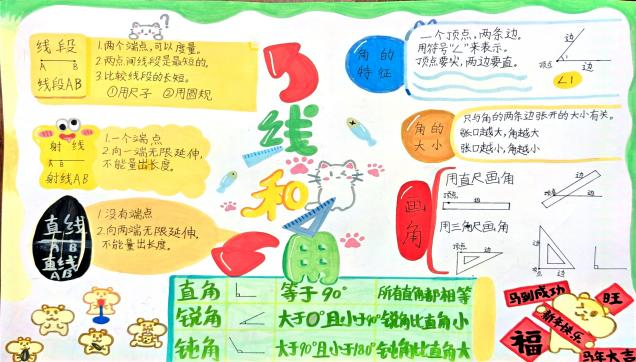 线段
A B
线段AB
1.两个端点,可以度量。
2.两点间线段是最短的。
3.比较线段的长短。
①用尺子 ②用圆规
射线
A B
射线AB
1.一个端点
2.向一端无限延伸,
不能量出长度。
直线
A B
直线AB
1.没有端点
2.向两端无限延伸,
不能量出长度。
线
和
角
角的
特征
一个顶点,两条边.
用符号"∠"来表示。
顶点要尖,两边要直。
边
顶点 边
∠1
角的
大小
只与角的两条边张开的大小有关。
张口越大,角越大
张口越小,角越小
画
角
用直尺画角
顶点 边
边
顶点 边
用三角尺画角
顶点 边
边
顶点 边
直角 等于90° 所有直角都相等
锐角 大于0°且小于90° 锐角比直角小
钝角 大于90°且小于180° 钝角比直角大
马到成功
旺
新年快乐
福
马年大吉